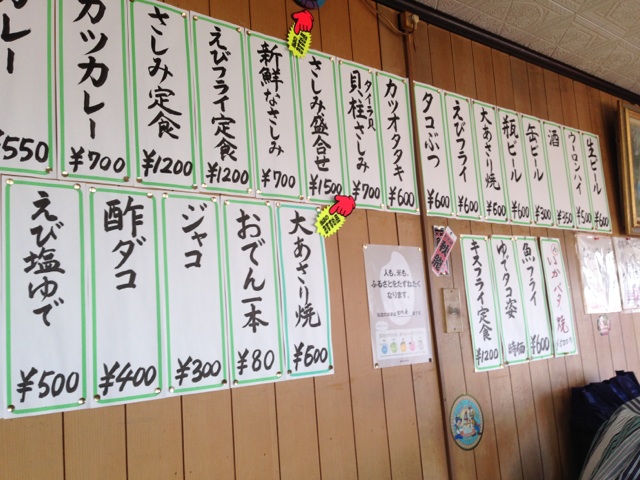 カレー
¥550
カツカレー
¥700
さしみ定食
¥1200
えびフライ定食
¥1200
新鮮なさしみ
¥700
さしみ盛合せ
¥1500
タイラ貝
貝柱さしみ
¥700
カツオタタキ
¥600
タコぶつ
¥600
えびフライ
¥600
大あさり焼
¥500
瓶ビール
¥600
缶ビール
¥300
酒
¥350
ウーロンハイ
¥500
生ビール
¥600
えび塩ゆで
¥500
酢ダコ
¥400
ジャコ
¥300
おでん一本
¥80
大あさり焼
¥500
人も、米も、
ふるさとをたずねたく
なります。
キスフライ定食
¥1200
ゆでダコ姿
時価
魚フライ
¥600